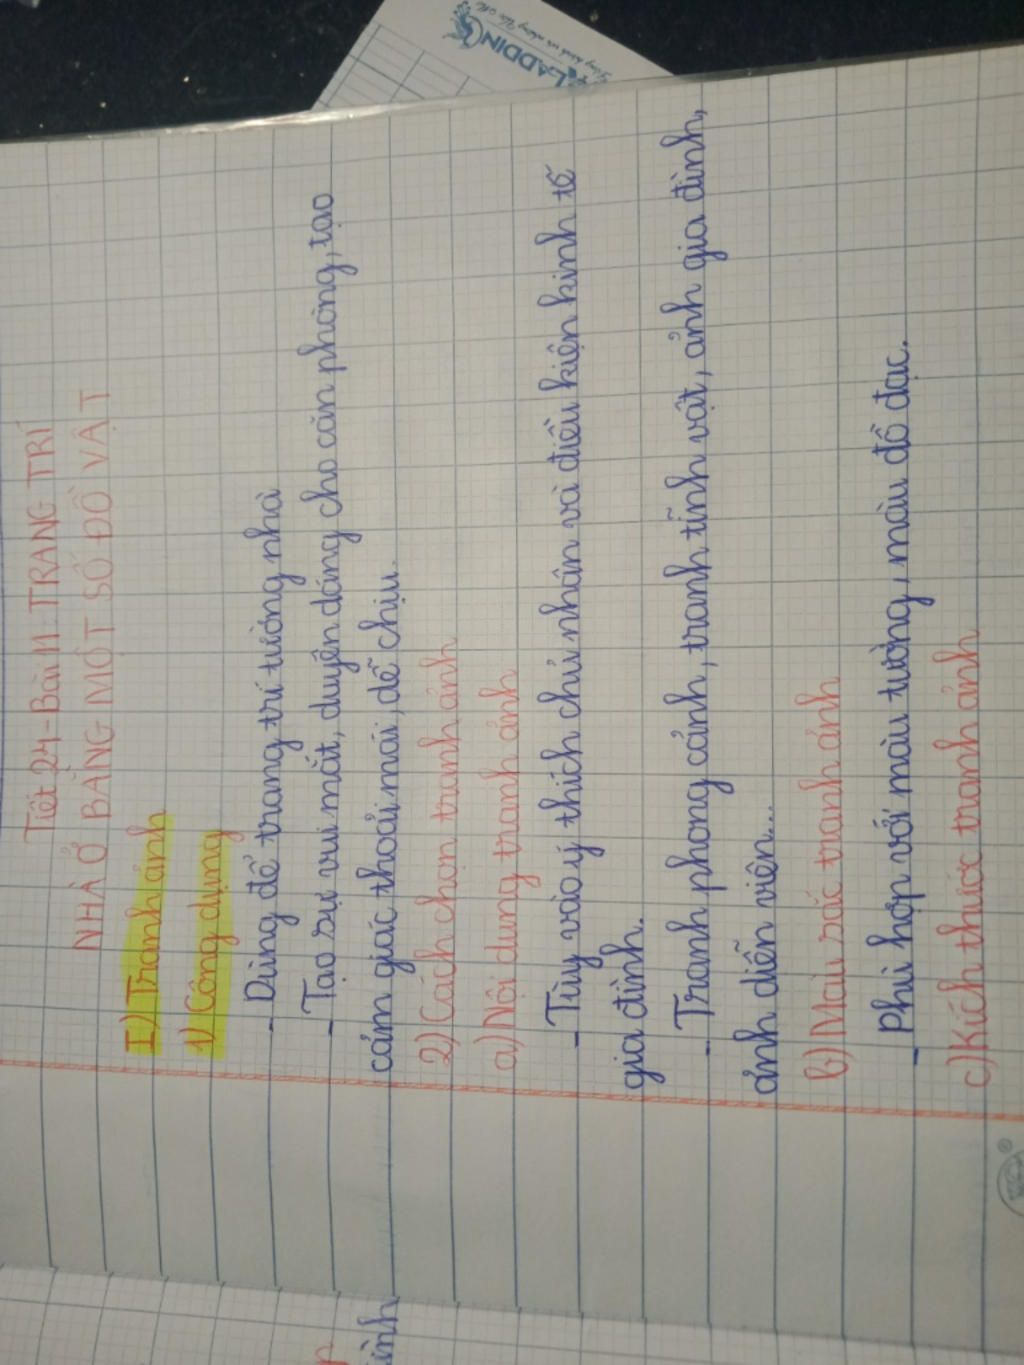 Tiết 24 - Bài 11: TRANG TRÍ
NHÀ Ở BẰNG MỘT SỐ ĐỒ VẬT
I) Tranh ảnh
1) Công dụng
- Dùng để trang trí tường nhà
- Tạo sự vui mắt, duyên dáng cho căn phòng, tạo
cảm giác thoải mái, dễ chịu.
2) Cách chọn tranh ảnh
a) Nội dung tranh ảnh
- Tùy vào ý thích chủ nhân và điều kiện kinh tế
gia đình.
- Tranh phong cảnh, tranh tĩnh vật, ảnh gia đình,
ảnh diễn viên...
b) Màu sắc tranh ảnh
- Phù hợp với màu tường, màu đồ đạc.
c) Kích thước tranh ảnh
ALADDIN